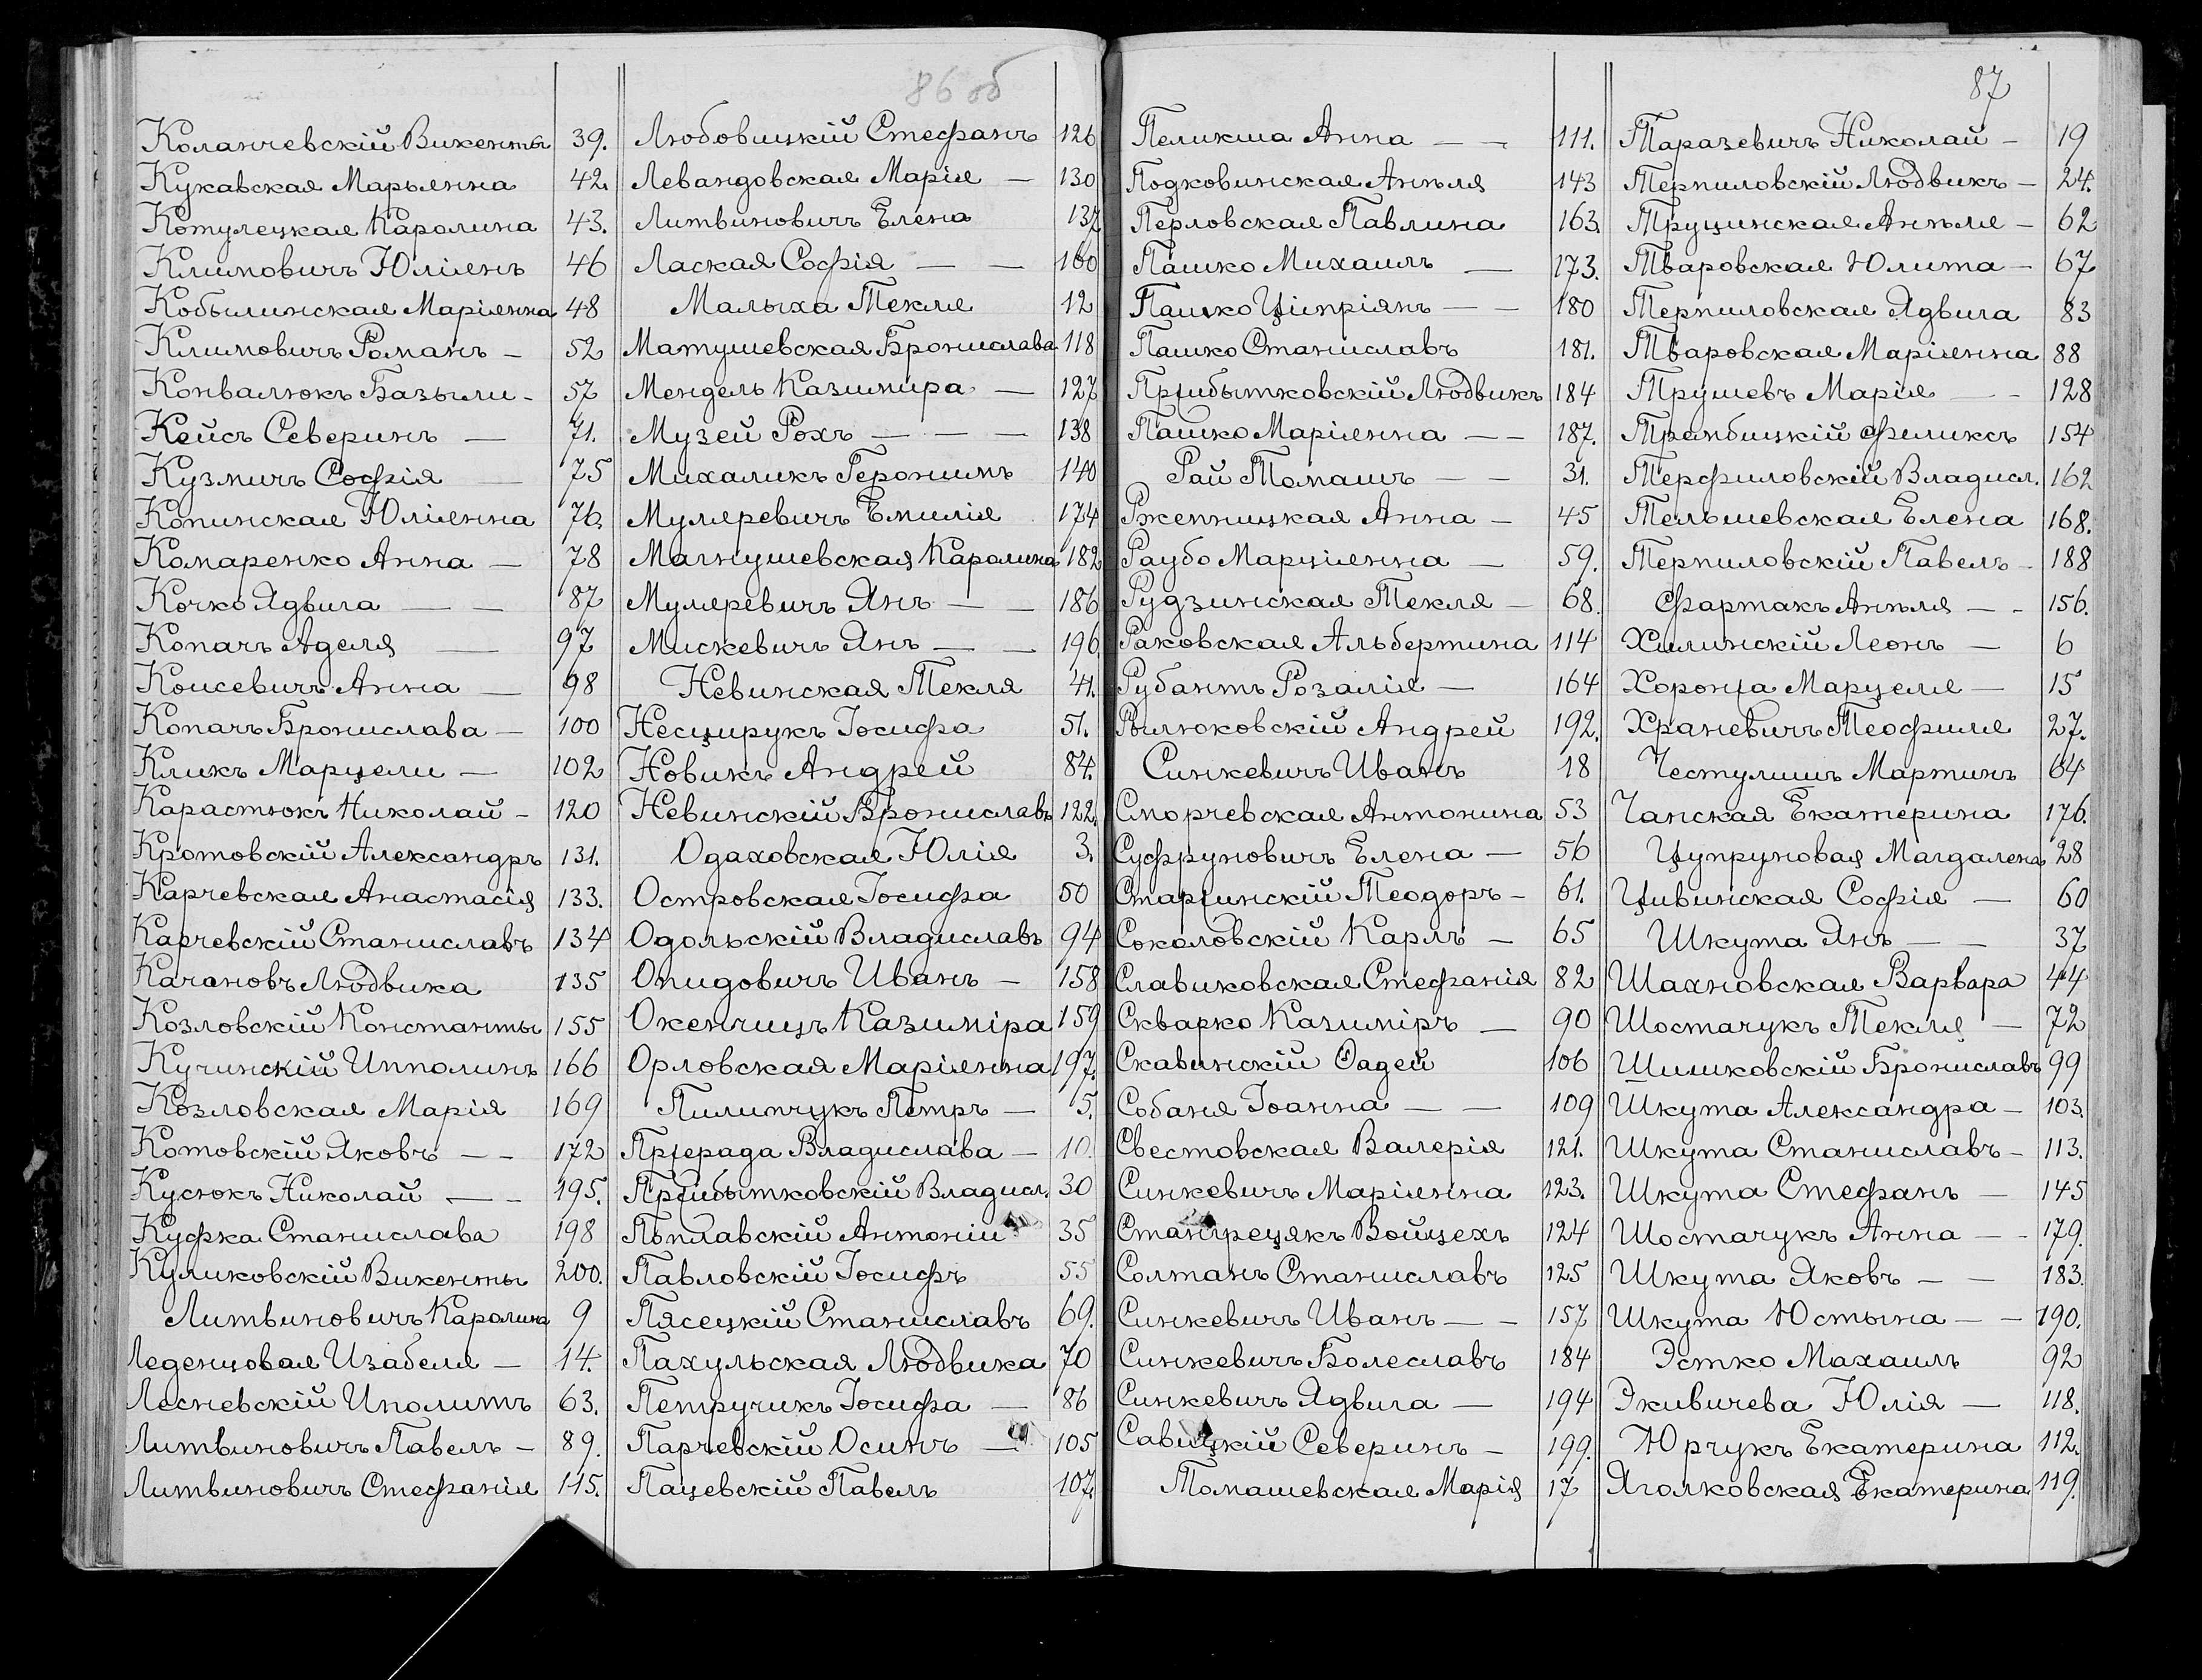 86 об
Коланчевскій Викенты 39.
Кукавская Марьянна 42.
Котулецкая Каролина 43.
Климовичъ Юліянъ 46
Кобылинская Маріянна 48
Климовичъ Романъ - 52
Конвалюкъ Базыли - 57
Кейсъ Северинъ — 71.
Кузмичъ Софія — 75
Копинская Юліянна 76.
Комаренко Анна — 78
Кочко Ядвига — — 87
Копачъ Аделя — 97
Коисевичъ Анна — 98
Копачъ Бронислава — 100
Кликъ Марцели — 102
Карастюкъ Николай - 120
Кротовскій Александръ 131.
Карчевская Анастасія 133.
Карчевскій Станиславъ 134
Качановъ Людвика 135
Козловскій Константы 155
Кучинскій Ипполинъ 166
Козловская Марія 169
Котовскій Яковъ — - 172
Кусюкъ Николай — - 195.
Куфка Станислава 198
Куликовскій Викенты 200.
Литвиновичъ Каролина 9
Леденцовая Изабеля — 14.
Лесневскій Иполитъ 63.
Литвиновичъ Павелъ - 89.
Литвиновичъ Стефанія 115.
Любовицкій Стефанъ 126
Левандовская Марія — 130
Литвиновичъ Елена 137
Лаская Софія — — 160
Малыха Текля 12
Матушевская Бронислава 118
Мендель Казимира — 127
Музей Рохъ — — — 138
Михаликъ Геронимъ 140
Муляревичъ Емилія 174
Магнушевская Каролина 182
Муляревичъ Янъ — — 186
Мискевичъ Янъ — — 196
Невинская Текля 41.
Несцирукъ Іосифа 51.
Новикъ Андрей 84.
Невинскій Брониславъ 122.
Одаховская Юлія 3.
Островская Іосифа 50
Одольскій Владиславъ 94
Опидовичъ Иванъ — 158
Океничицъ Казиміра 159
Орловская Маріянна 197.
Пилипчукъ Петръ — 5.
Пржерада Владислава — 10.
Пржибытковскій Владисл. 30
Поплавскій Антоній 35
Павловскій Іосифъ 55
Пясецкій Станиславъ 69.
Пахульская Людвика 70
Петручикъ Іосифа — 86
Парчевскій Осипъ — 105
Пацевскій Павелъ 107.
87
Пеликша Анна — — 111.
Подковинская Анъля 143
Перловская Павлина 163.
Пашко Михаилъ — 173.
Пашко Ципріянъ — — 180
Пашко Станиславъ 181.
Пржибытковскій Людвикъ 184
Пашко Маріянна — — 187.
Рай Томашъ — — 31.
Ржепницкая Анна — 45
Раубо Марціянна — 59.
Рудзинская Текля — 68.
Раковская Альбертина 114
Рубантъ Розалія — 164
Рылюковскій Андрей 192.
Синкевичъ Иванъ 18
Споргевская Антонина 53
Суфруновичъ Елена — 56
Старжинскій Теодоръ - 61.
Соколовскій Карлъ — 65
Славиковская Стефанія 82
Скварко Казиміръ — 90
Скавинскій Фадей 106
Собаня Іоанна — — 109
Свестовская Валерія 121.
Синкевичъ Маріянна 123.
Стангрецякъ Войцехъ 124
Солтанъ Станиславъ 125
Синкевичъ Иванъ — - 157
Синкевичъ Болеславъ 184
Синкевичъ Ядвига — 194
Савицкій Северинъ — 199.
Томашевская Марія 17
Таразевичъ Николай - 19
Терпиловскій Людвикъ — 24.
Труцинская Анъля — 62
Тваровская Юлита — 67
Терпиловская Ядвига 83
Тваровская Маріянна 88
Трушевъ Марія — - 128
Трамбицкій Феликсъ 154
Терфиловскій Владисл. 162
Тельшевская Елена 168.
Терпиловскій Павелъ - 188
Фартакъ Анъля — - 156.
Хилинскій Леонъ — 6
Хоронжа Марцеля — 15
Храневичъ Теофиля 27.
Честулишъ Мартинъ 64
Чапская Екатерина 176.
Цупруновая Магдалена 28
Цивинская Софія — 60
Шкута Янъ — — 37
Шахновская Варвара 44
Шостачукъ Текля — 72
Шишковскій Брониславъ 99
Шкута Александра — 103.
Шкута Станиславъ - 113.
Шкута Стефанъ — 145
Шостачукъ Анна — - 179.
Шкута Яковъ — — 183.
Шкута Юстына — — 190.
Эстко Махаилъ 92
Экивичева Юлія — 118.
Юрчукъ Екатерина 112.
Яголковская Екатерина 119.